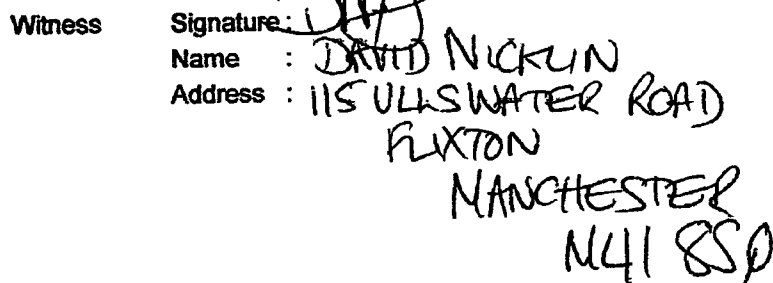 Witness Signature:
Name : DAVID NICKLIN
Address : 115 ULLSWATER ROAD
FLIXTON
MANCHESTER
M41